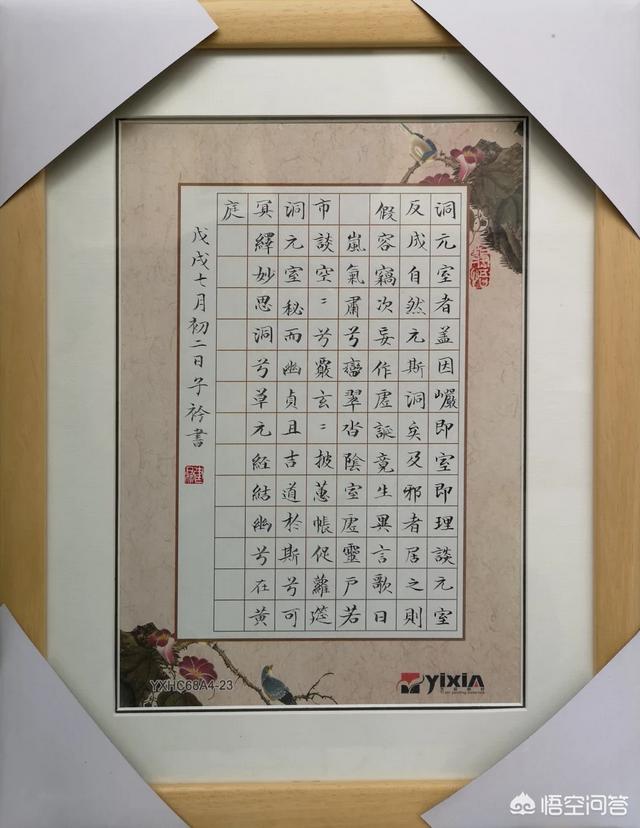 洞元室者盖因巗即室即理談元室
反成自然元斯洞矣及邪者居之則
假容竊次妄作虛誕竟生異言歌曰
嵐氣肅兮巒翠沓陰室虛靈戶若
市談空〻兮覈玄〻披蕙帳促蘿筵
洞元室秘而幽貞且吉道於斯兮可
冥繹妙思洞兮草元経結幽兮在黃
庭
戊戌七月初二日子衿書
YXHC68A4-23
YIXIA
悟空问答